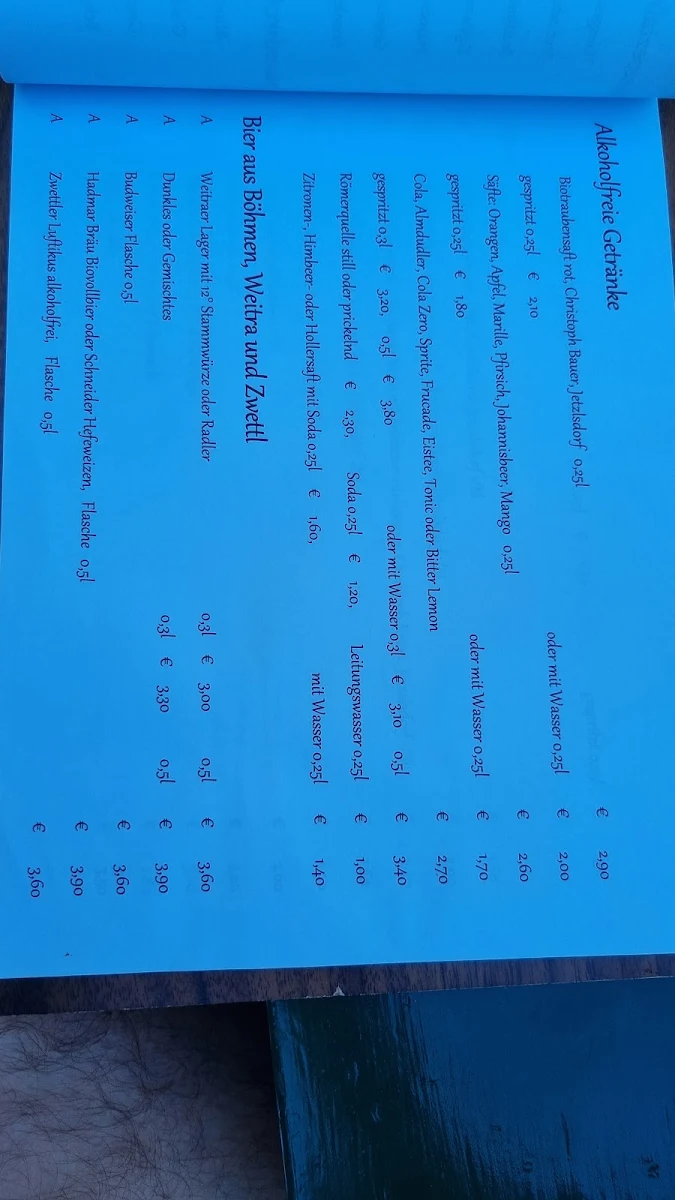 Alkoholfreie Getränke
Biotraubensaft rot, Christoph Bauer, Jetzlsdorf 0,25l € 2,90
gespritzt 0,25l € 2,10 oder mit Wasser 0,25l € 2,00
Säfte: Orangen, Apfel, Marille, Pfirsich, Johannisbeer, Mango 0,25l € 2,60
gespritzt 0,25l € 1,80 oder mit Wasser 0,25l € 1,70
Cola, Almdudler, Cola Zero, Sprite, Frucade, Eistee, Tonic oder Bitter Lemon € 2,70
gespritzt 0,3l € 3,20, 0,5l € 3,80 oder mit Wasser 0,3l € 3,10 0,5l € 3,40
Römerquelle still oder prickelnd € 2,30, Soda 0,25l € 1,20, Leitungswasser 0,25l € 1,00
Zitronen-, Himbeer- oder Hollersaft mit Soda 0,25l € 1,60, mit Wasser 0,25l € 1,40
Bier aus Böhmen, Weitra und Zwettl
A Weitraer Lager mit 12° Stammwürze oder Radler 0,3l € 3,00 0,5l € 3,60
A Dunkles oder Gemischtes 0,3l € 3,30 0,5l € 3,90
A Budweiser Flasche 0,5l € 3,60
A Hadmar Bräu Biovollbier oder Schneider Hefeweizen, Flasche 0,5l € 3,90
A Zwettler Luftikus alkoholfrei, Flasche 0,5l € 3,60